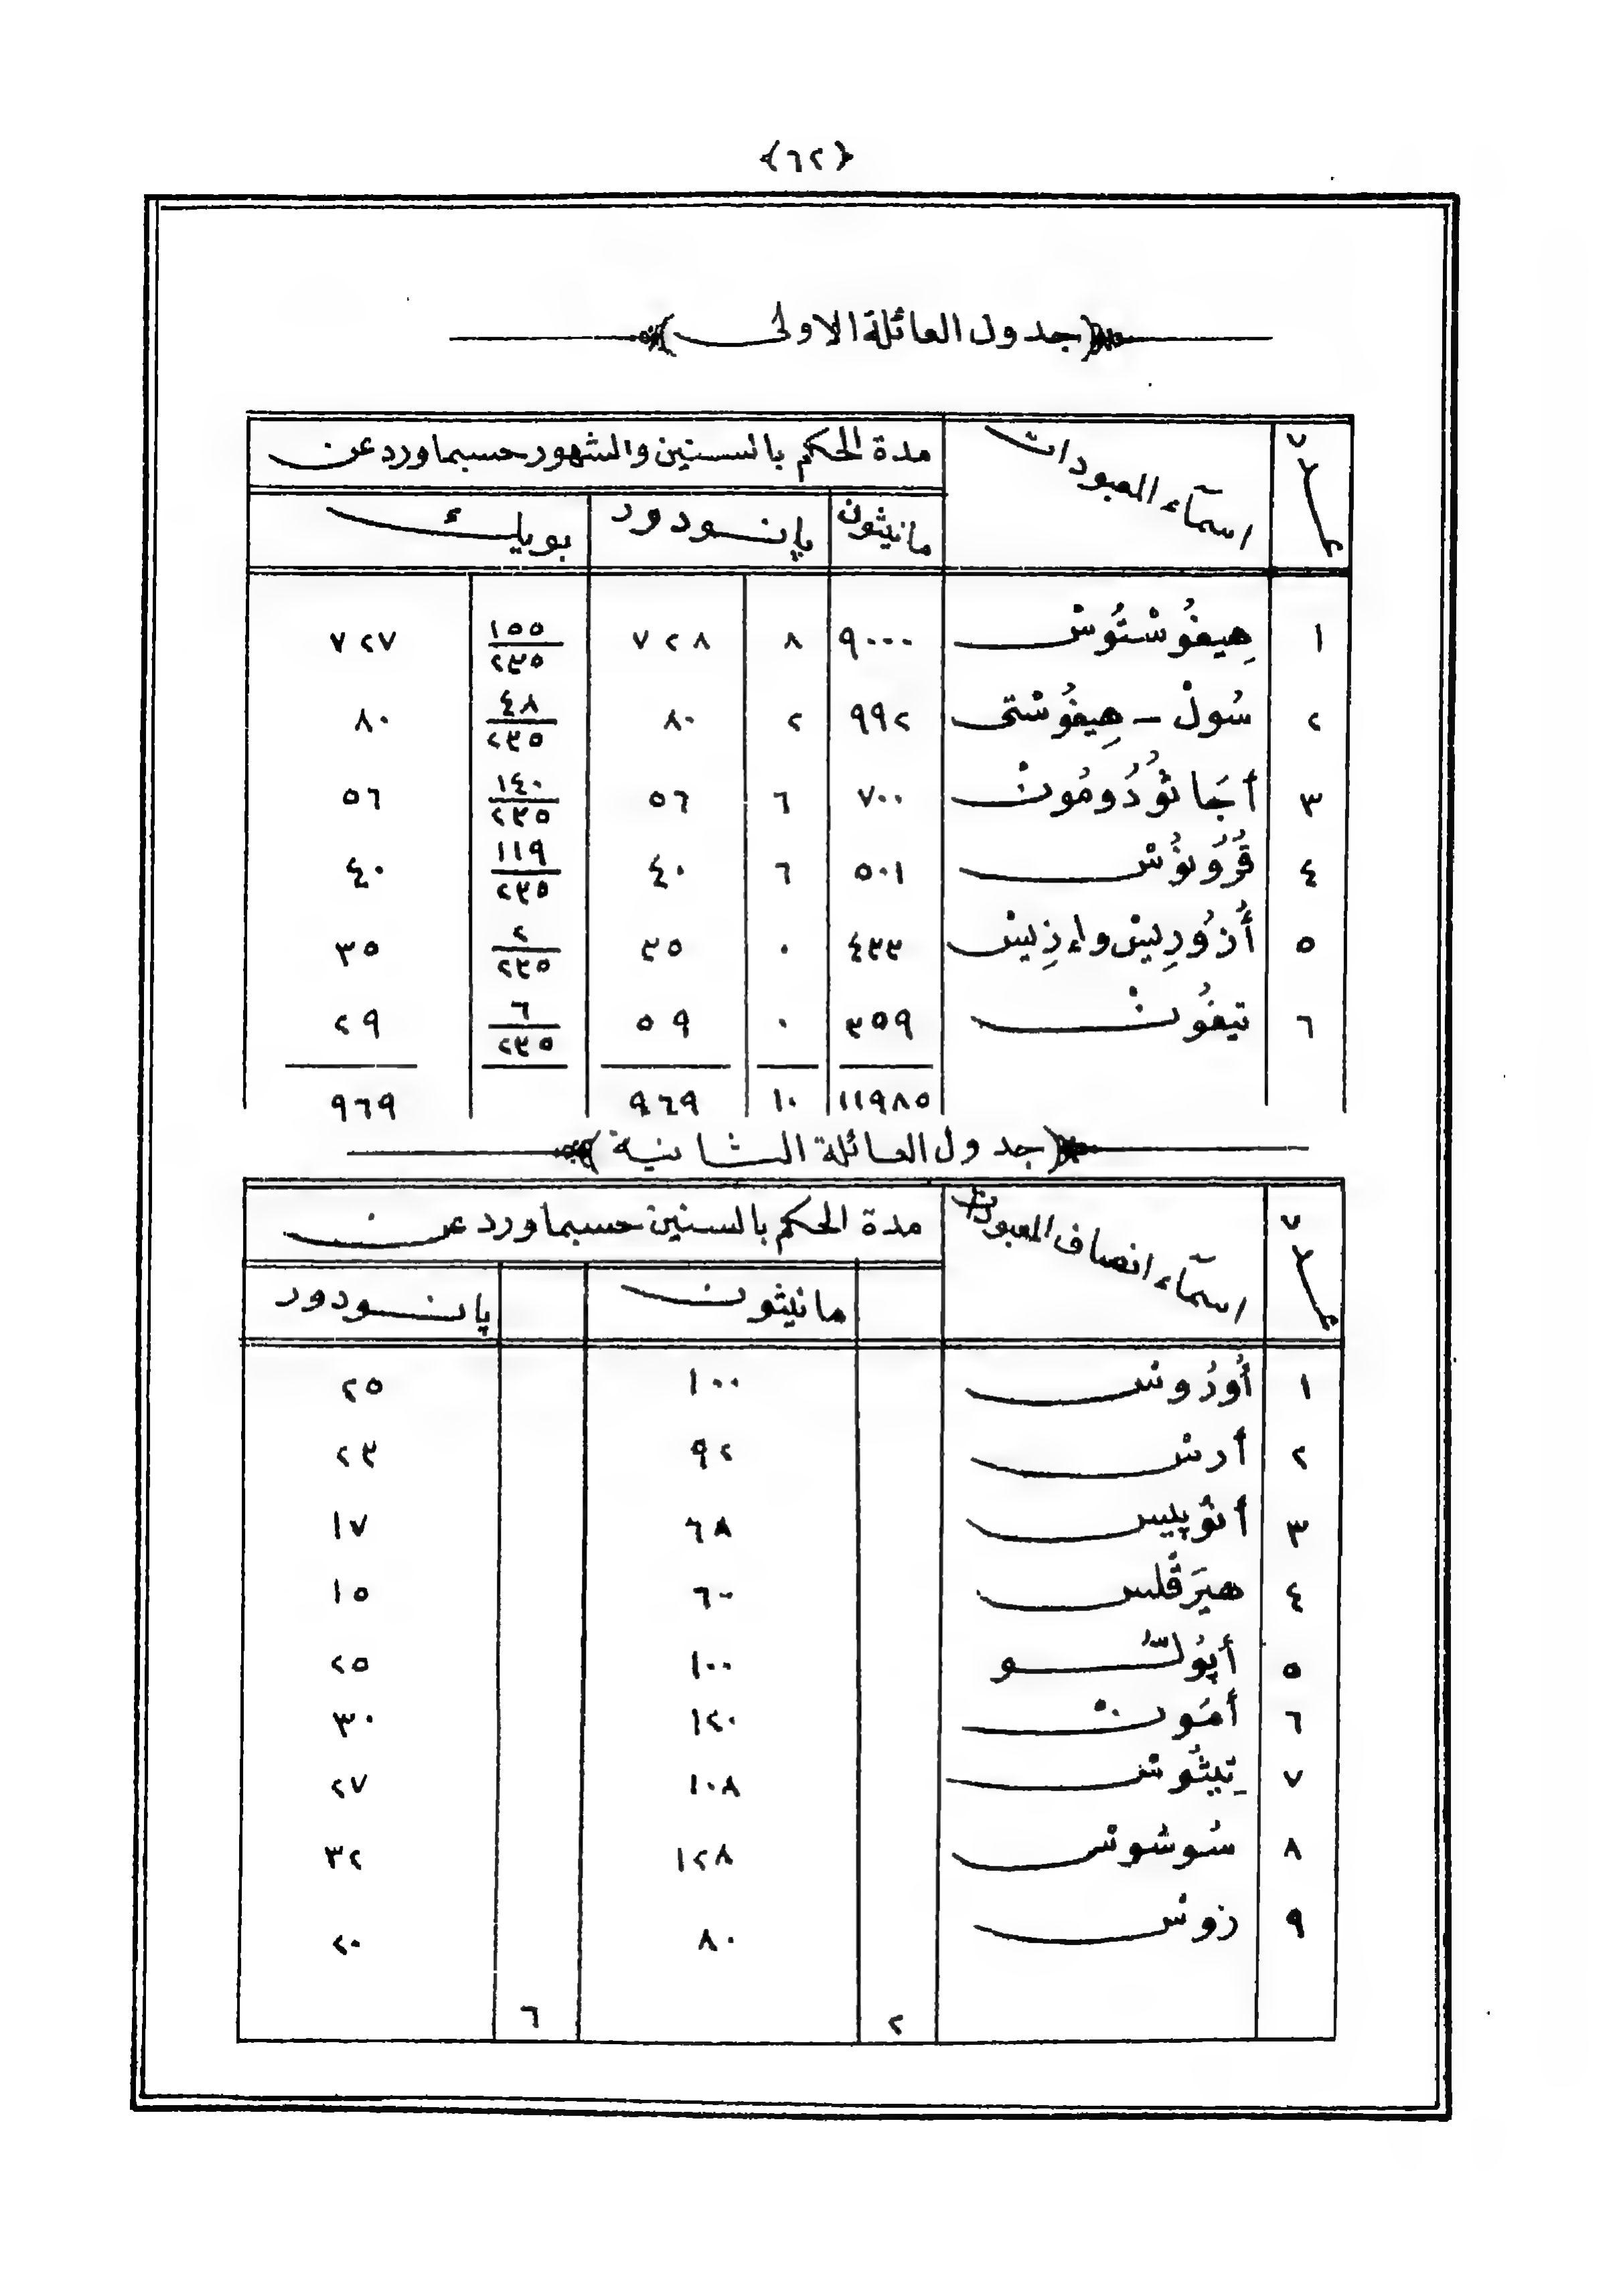 ﴿٦٢﴾
﴿جدول العائلة الاولى﴾
عدد | اسمآء المعبودات | مدة الحكم بالسنين والشهور حسبما ورد عن
مانيثون | پانودور | بويك
١ | هِيفُوسْتُوسْ | ٩٠٠٠ | ٨ | ٧٢٨ | ١٥٥/٢٣٥ | ٧٢٧
٢ | سُولْ – هِيفُوسْتى | ٩٩٢ | ٢ | ٨٠ | ٤٨/٢٣٥ | ٨٠
٣ | أجَاثُودُومُونْ | ٧٠٠ | ٦ | ٥٦ | ١٤٠/٢٣٥ | ٥٦
٤ | قُرُونُوسْ | ٥٠١ | ٦ | ٤٠ | ١١٩/٢٣٥ | ٤٠
٥ | أُزُورِيسْ وإِزِيسْ | ٤٣٣ | ٠ | ٣٥ | ٢/٢٣٥ | ٣٥
٦ | تيفُونْ | ٣٥٩ | ٠ | ٥٩ | ٦/٢٣٥ | ٢٩
١١٩٨٥ | ١٠ | ٩٦٩ | ٩٦٩
﴿جدول العائلة الثانية﴾
عدد | اسمآء انصاف المعبودات | مدة الحكم بالسنين حسبما ورد عن
مانيثون | پانودور
١ | أُورُوسْ | ١٠٠ | ٢٥
٢ | أرسْ | ٩٢ | ٢٣
٣ | أنُوپيس | ٦٨ | ١٧
٤ | هيَرقْلس | ٦٠ | ١٥
٥ | أپُولّو | ١٠٠ | ٢٥
٦ | أمَونْ | ١٢٠ | ٣٠
٧ | تِيثُوسْ | ١٠٨ | ٢٧
٨ | سُوسُوسْ | ١٢٨ | ٣٢
٩ | زوسْ | ٨٠ | ٢٠
٢ | ٦